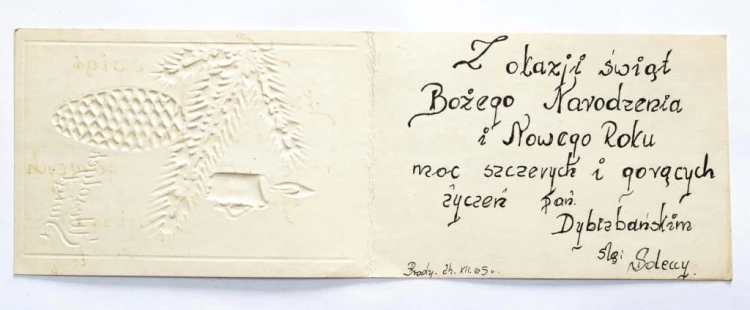 Z okazji świąt
Bożego Narodzenia
i Nowego Roku
moc szczerych i gorących
życzeń pań.
Dybizbańskim
ślą:
Soleccy.
Brody. 24. XII. 65 r.